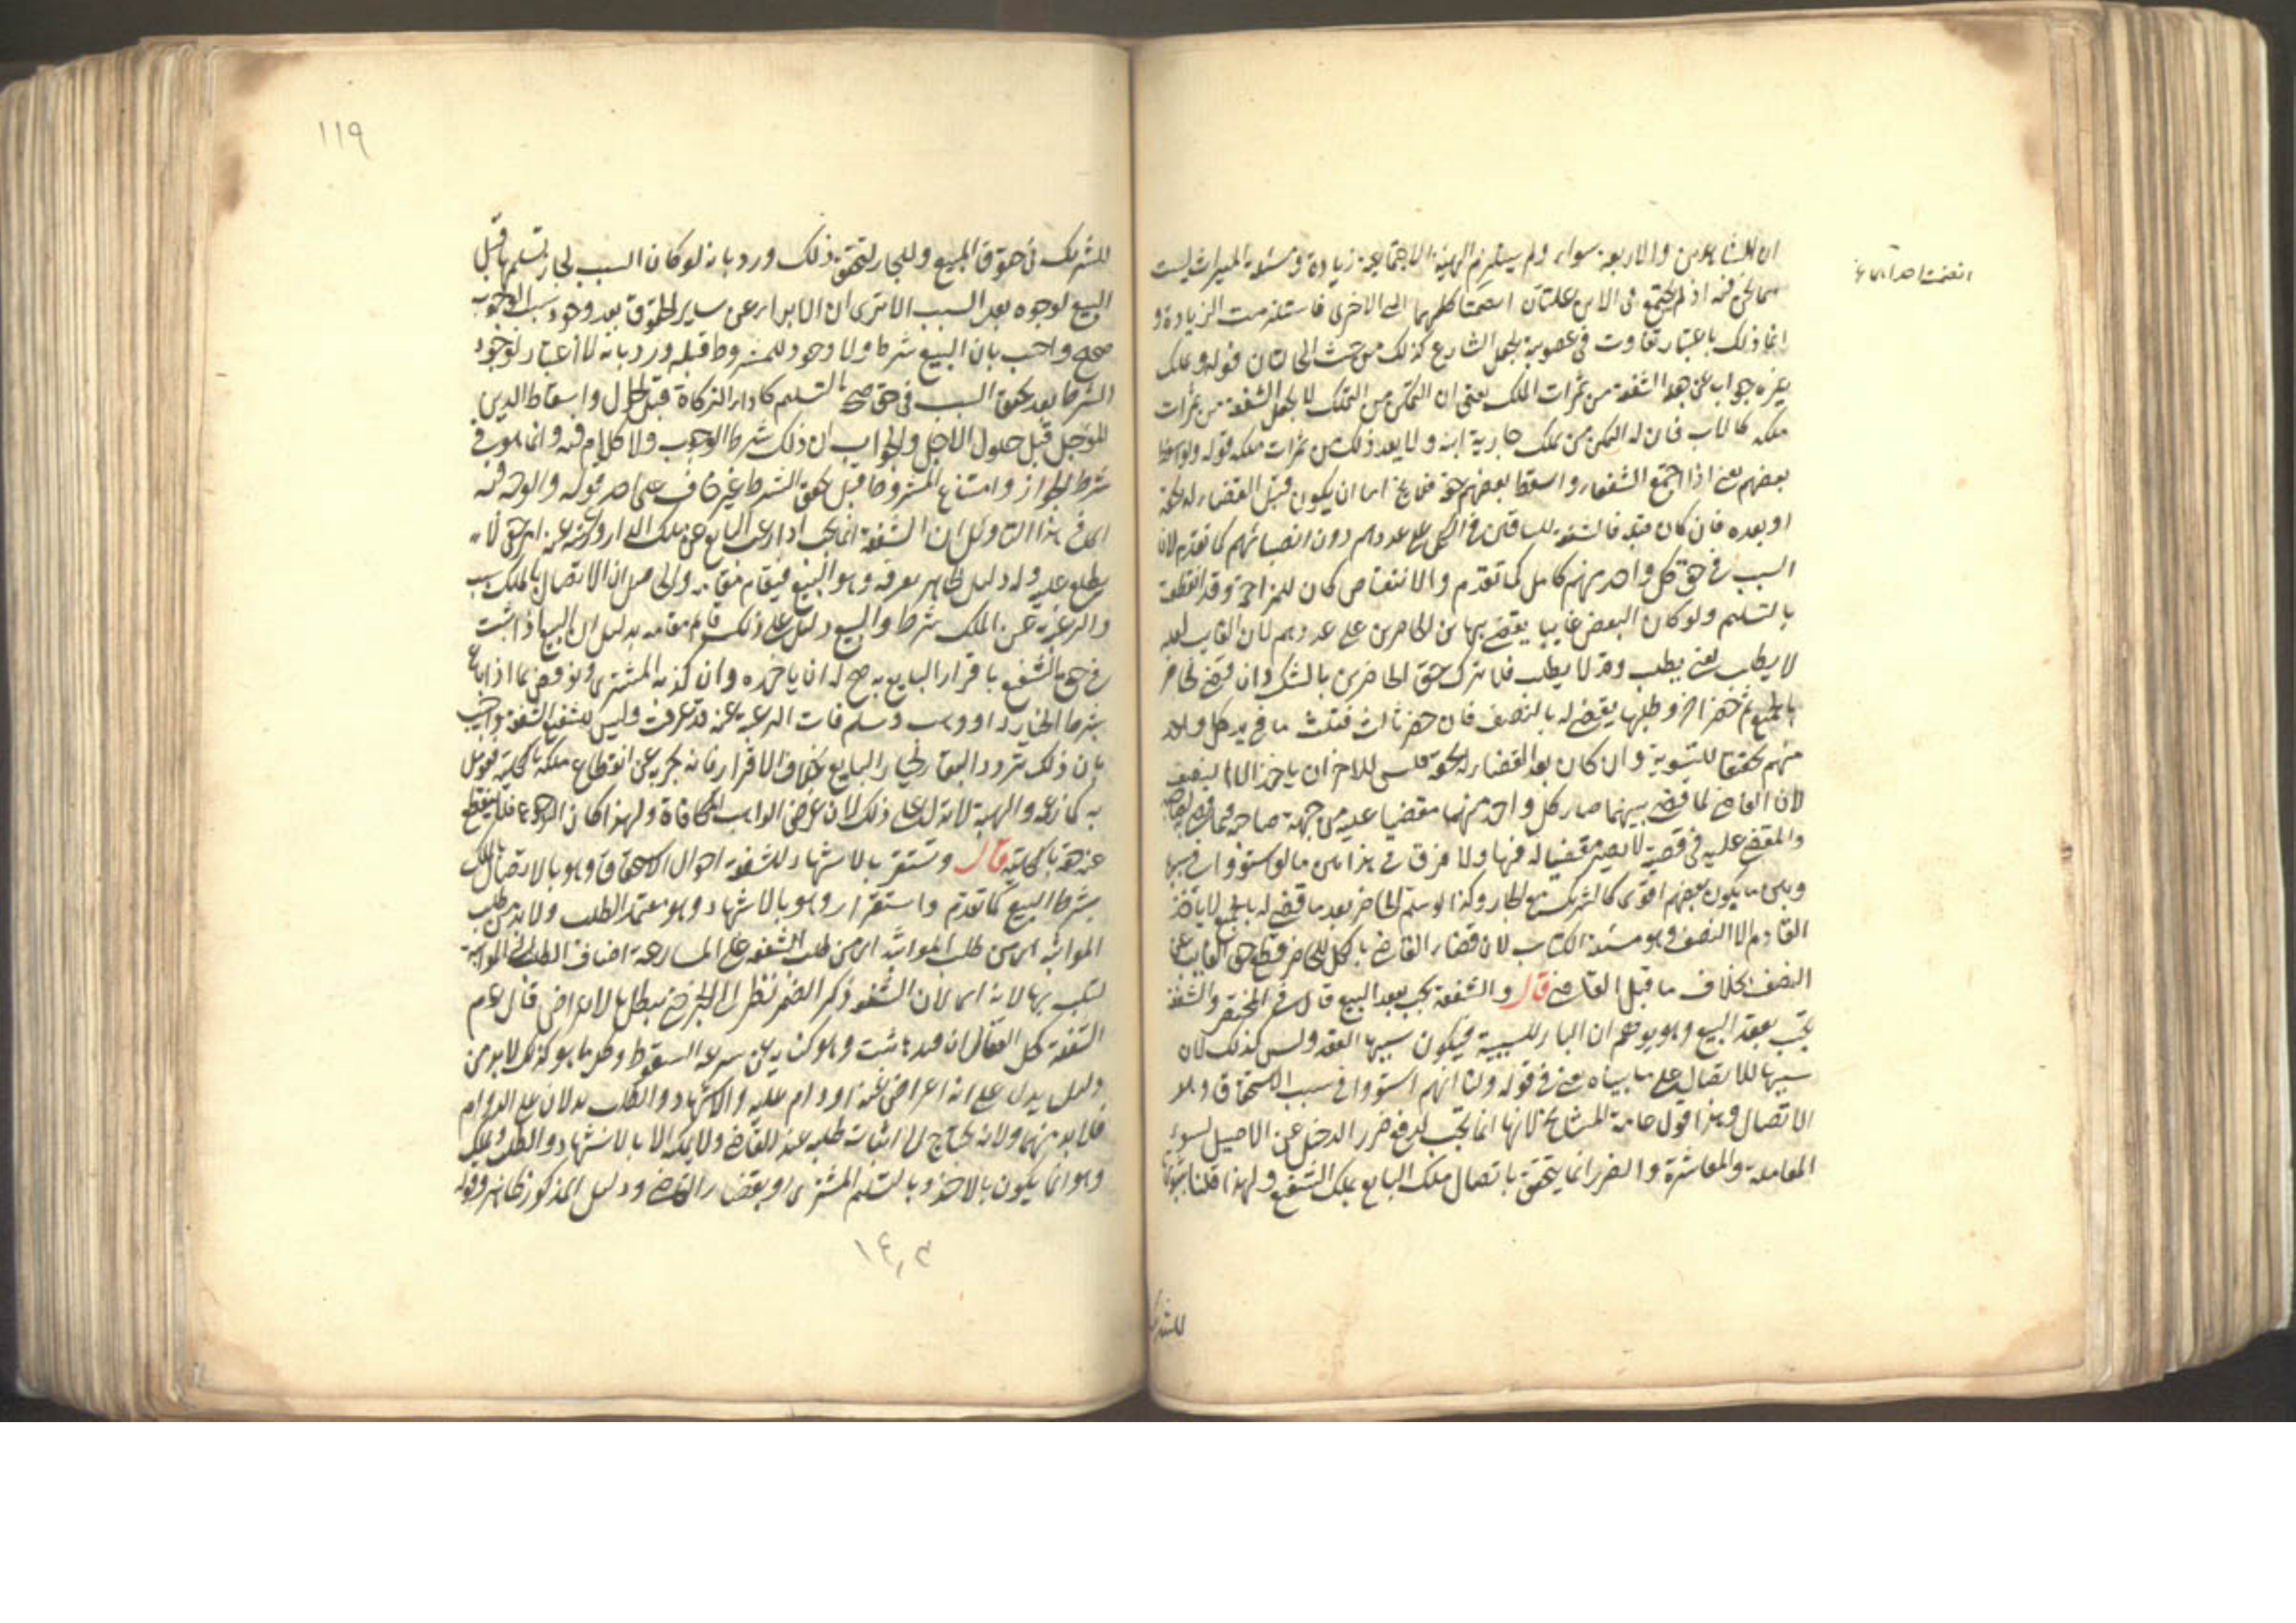 ان الشاهدين والاربعة سواء ولم يستلزم الهيئة الاجتماعية زيادة ومسئلة الميراث ليست
مما نحن فيه اذ لم يجتمع فى الابن علتان انضمتا كلهما الى الاخرى فاستلزمت الزيادة و
انما ذلك باعتبار تفاوت فى عصوبة بجعل الشارع كذلك من حيث الحالتان قوله وتملك
غيره جواب عن جعل الشفعة من ثمرات الملك يعنى ان التمكن من التملك لا يجعل الشفعة من ثمرات
ملكه كالاب فان له التمكن من تملك جارية ابنه ولا يعد ذلك من ثمرات ملكه قوله ولو اسقط
بعضهم يعنى اذا اجتمع الشفعاء واسقط بعضهم حقه فلا يخ اما ان يكون قبل القضاء له بحقه
او بعده فان كان قبله فالشفعة للباقين فى الكل على عددهم دون انصبائهم كما تقدم لان
السبب فى حق كل واحد منهم كامل كما تقدم والانتقاص كان للمزاحمة وقد انقطعت
بالتسليم ولو كان البعض غايبا يقضى بها بين الحاضرين على عددهم لان الغايب لعله
لا يطلب يعنى يطلب وقد لا يطلب فلا يترك حق الحاضرين بالشك وان قضى لحاضر
بالجميع ثم حضر اخر وطلبها يقضى له بالنصف فان حضر ثالث فثلث ما فى يد كل واحد
منهم تحقيقا للتسوية وان كان بعد القضاء له بحقه فليس للاخر ان ياخذ الا النصف
لان القاضى لما قضى بينهما صار كل واحد منهما مقضيا عليه من جهة صاحبه فيما قضى لصاحبه
والمقضى عليه فى قضية لا يصير مقضيا له فيها ولا فرق فى هذا بين ما لو استووا فى سببها
وبين ما يكون بعضهم اقوى كالشريك مع الجار وكذا لو سلم الحاضر بعد ما قضى له بالجميع لا ياخذ
القادم الا النصف وهو مسئلة الكتاب لان قضاء القاضى بالكل للحاضر قطع حق الغايب عن
النصف بخلاف ما قبل القضاء قال والشفعة تجب بعقد البيع قال فى المختصر والشفعة
تجب بعقد البيع وهو يوهم ان الباء للسببية فيكون سببها العقد وليس كذلك لان
سببها الاتصال على ما بيناه يعنى فى قوله ولنا انهم استووا فى سبب الاستحقاق وهو
الاتصال وهذا قول عامة المشايخ لانها انما تجب لدفع ضرر الدخيل عن الاصيل لسوء
المعاملة والمعاشرة والضرر انما يتحقق باتصال ملك البايع بملك الشفيع ولهذا قلنا بثبوتها
للشريك
١١٩
للشريك فى حقوق المبيع وللجار لتحقق ذلك ورد بانه لو كان السبب لجاز تسليمها قبل
البيع لوجوده بعد السبب الا ترى ان الابراء عن ساير الحقوق بعد وجود سبب الوجوب
صحيح واجيب بان البيع شرط ولا وجود للمشروط قبله ورد بانه لا اعتبار لوجود
الشرط بعد تحقق السبب فى حق صحة التسليم كاداء الزكاة قبل الحول واسقاط الدين
المؤجل قبل حلول الاجل والجواب ان ذلك شرط الوجوب ولا كلام فيه وانما هو فى
شرط الجواز وامتناع المشروط قبل تحقق الشرط غير خاف على احد قوله والوجه فيه
اى فى هذا التاويل ان الشفعة انما تجب اذا رغب البايع عن ملك الدار والرغبة عنه امر خفى لا
يطلع عليه وله دليل ظاهر يعرفه وهو البيع فيقام مقامه والحاصل ان الاتصال بالملك سبب
والرغبة عن الملك شرط والبيع دليل على ذلك قايم مقامه بدليل ان البيع اذا ثبت
فى حق الشفيع باقرار البايع به صح له ان ياخذه وان كذبه المشترى ونوقض بما اذا باع
بشرط الخيار له او وهب وسلم فان الرغبة عنه قد عرفت وليس للشفيع الشفعة واجيب
بان ذلك تردد البقاء لخيار البايع بخلاف الاقرار فانه يخبر به عن انقطاع ملكه بالكلية فعومل
به كما زعمه والهبة لا تدل على ذلك لان غرض الواهب المكافاة ولهذا كان له الرجوع فلا ينقطع
عنه حقه بالكلية قال وتستقر بالاشهاد للشفعة احوال الاستحقاق وهو بالاتصال بالملك
بشرط البيع كما تقدم واستقرار وهو بالاشهاد وهو معتمد الطلب ولا بد من طلب
المواثبة اى من طلب المواثبة اى من طلب الشفعة على المسارعة اضاف الطلب الى المواثبة
لتلبسه بها لانه اى لان الشفعة ذكر الضمير نظر الى الخبر حق ضعيف يبطل بالاعراض قال عم
الشفعة كحل العقال ان قيدها ثبت وهو كناية عن سرعة السقوط وكل ما هو كذلك لا بد من
دليل يدل على انه اعراض عنه او دام عليه والاشهاد والطلب يدلان على الدوام
فلا بد منهما ولانه يحتاج الى اثبات طلبه عند القاضى ولا يمكنه الا بالاشهاد والطلب وتملك
وهو انما يكون بالاخذ وبالتسليم المشترى او بقضاء القاضى ودليل المذكور ظاهر وقوله